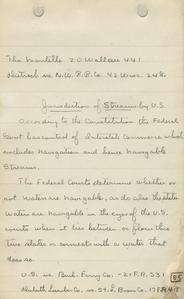 The Montello 20 Wallace 441
vs. N.W. R.R. Co 42 Wis. 248.
Jurisdiction of Streams by U.S.
According to the Constitution the Federal
Govt has control of Interstate Commerce which
includes Navigation and hence Navigable
Streams.
The Federal Courts determine whether or
not waters are Navigable, as do also the state
Waters are navigable in the eyes of the U.S.
courts when it lies between or flows thru
two states or connects with a water that
does so.
U.S. vs. Burl. Ferry Co. - 21 F.R. 331
85
Duluth Lumber Co. vs St. L. Boom Co. 17 F.R. 419